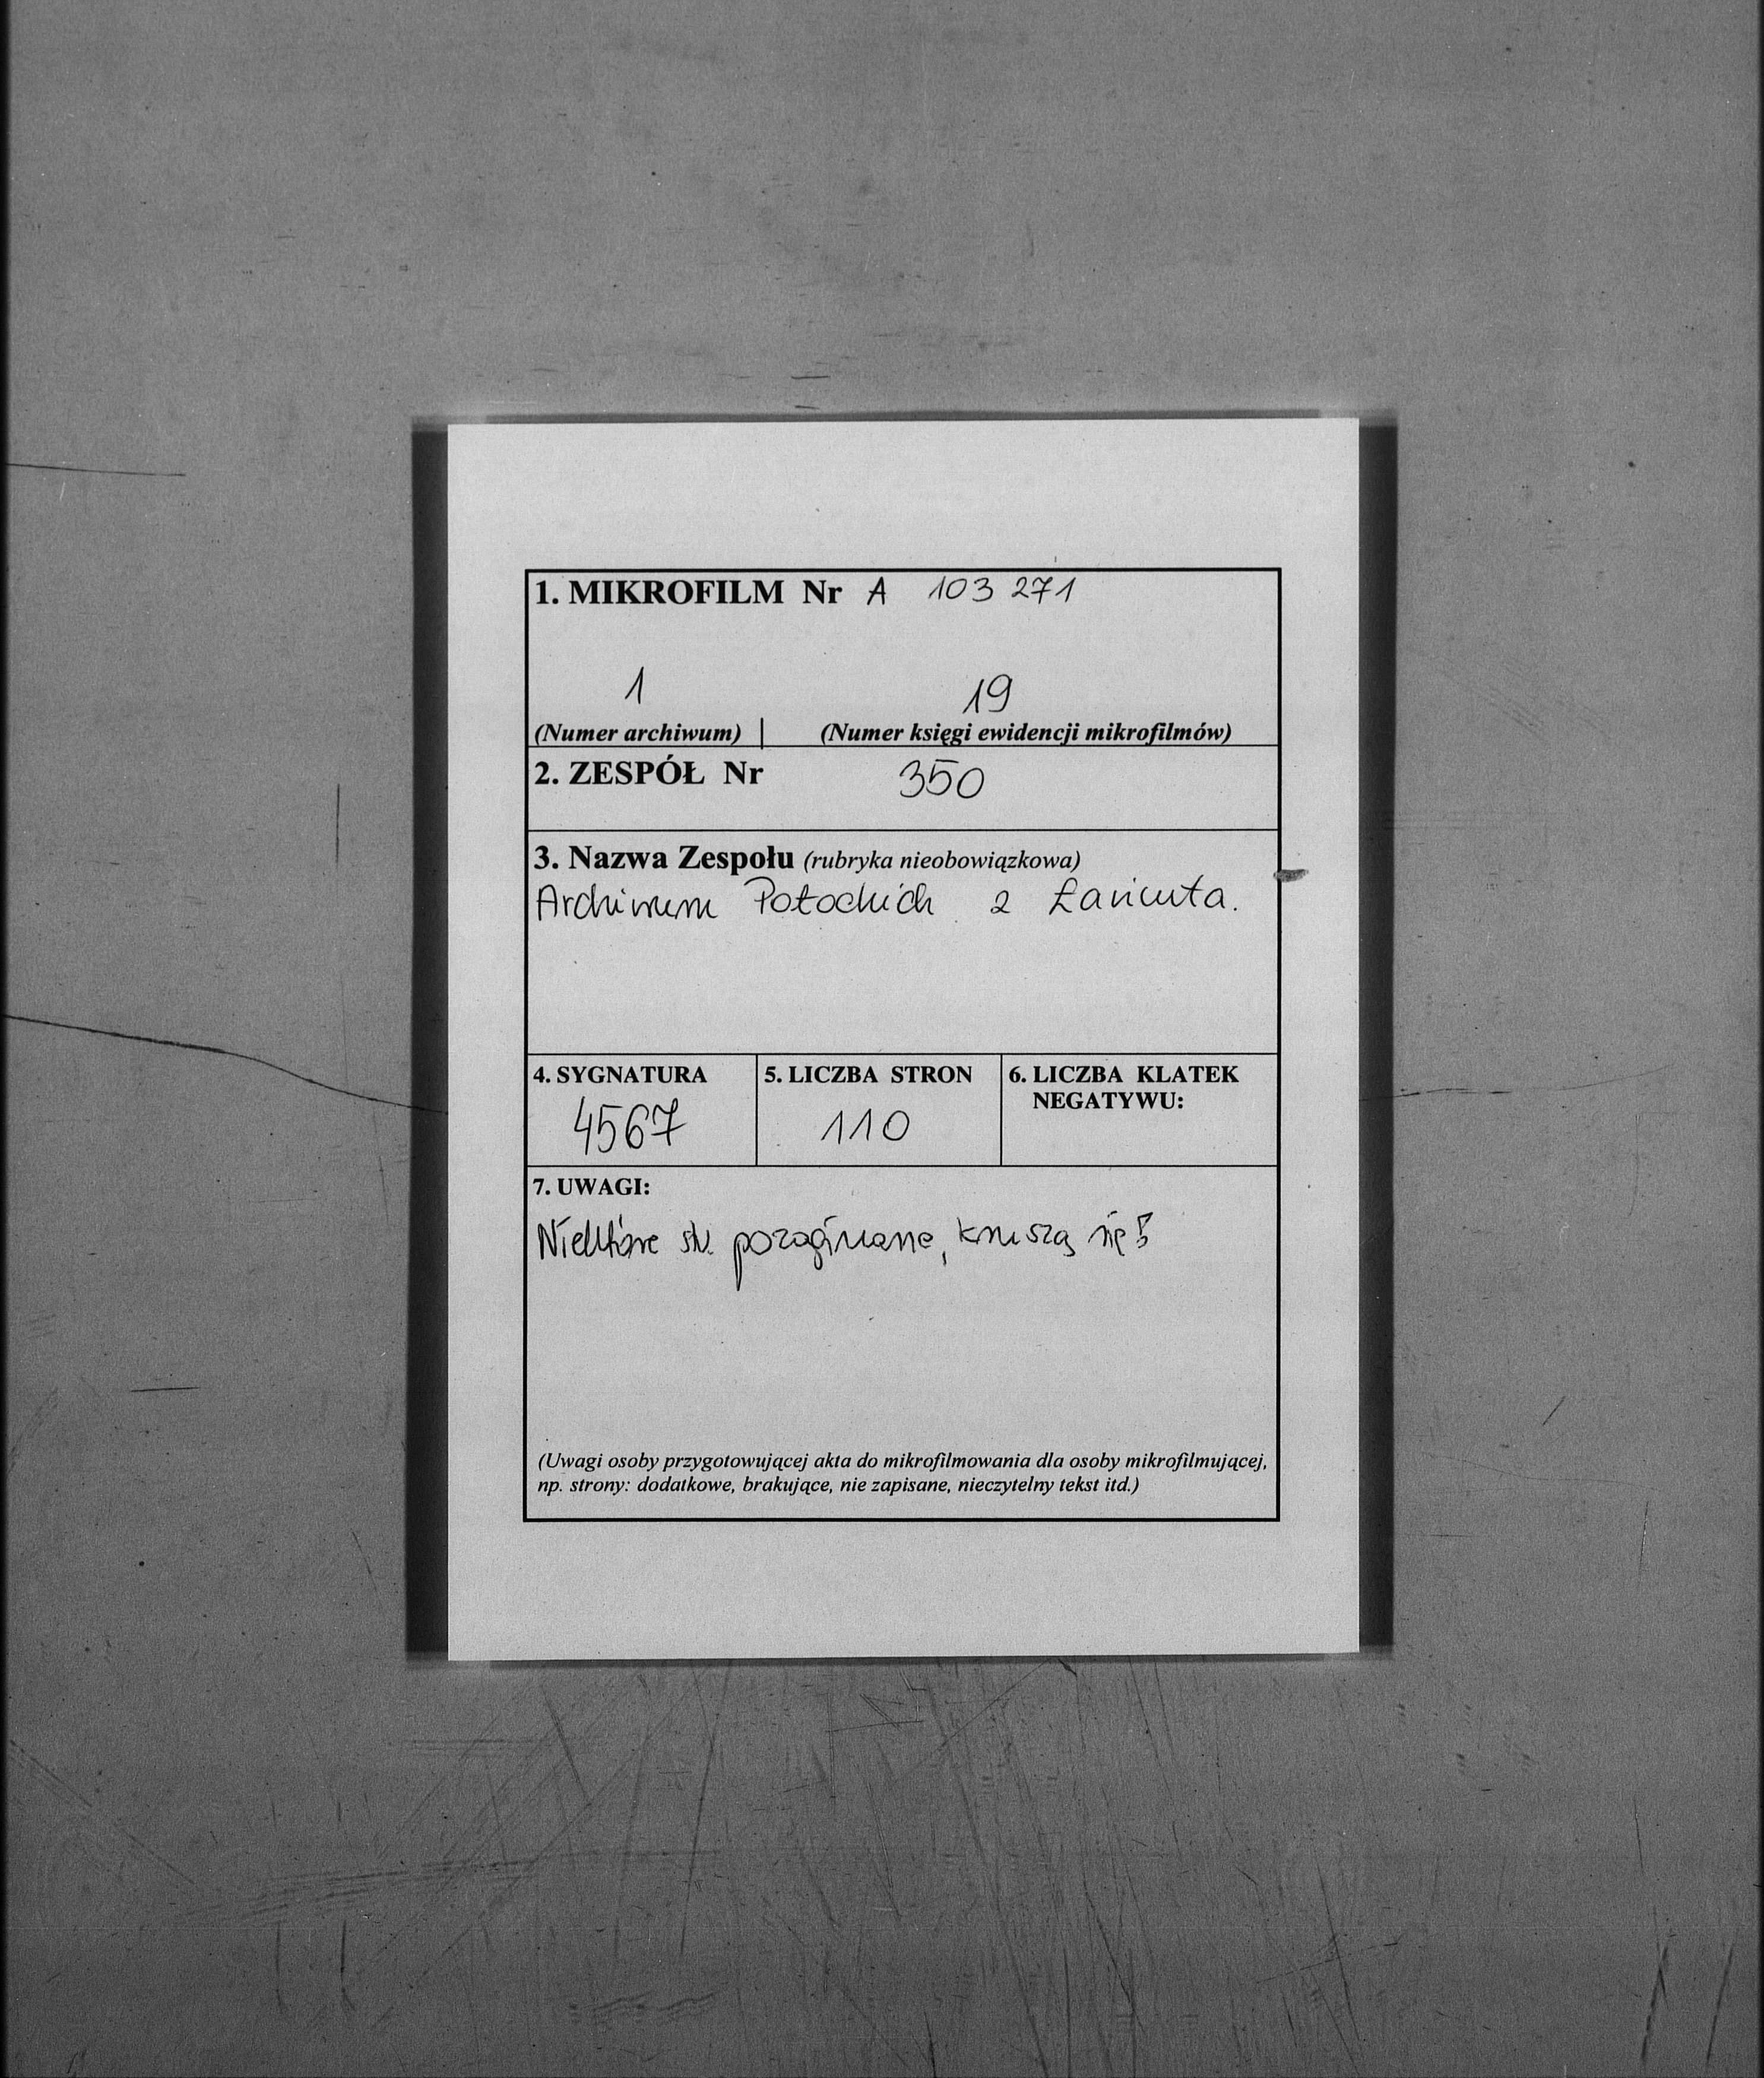 1. MIKROFILM Nr A 103 271
1 19
(Numer archiwum) | (Numer księgi ewidencji mikrofilmów)
2. ZESPÓŁ Nr 350
3. Nazwa Zespołu (rubryka nieobowiązkowa)
Archiwum Potockich z Łańcuta.
4. SYGNATURA
4567
5. LICZBA STRON
110
6. LICZBA KLATEK
NEGATYWU:
7. UWAGI:
Niektóre str. pozaginane, kruszą się!
(Uwagi osoby przygotowującej akta do mikrofilmowania dla osoby mikrofilmującej,
np. strony: dodatkowe, brakujące, nie zapisane, nieczytelny tekst itd.)